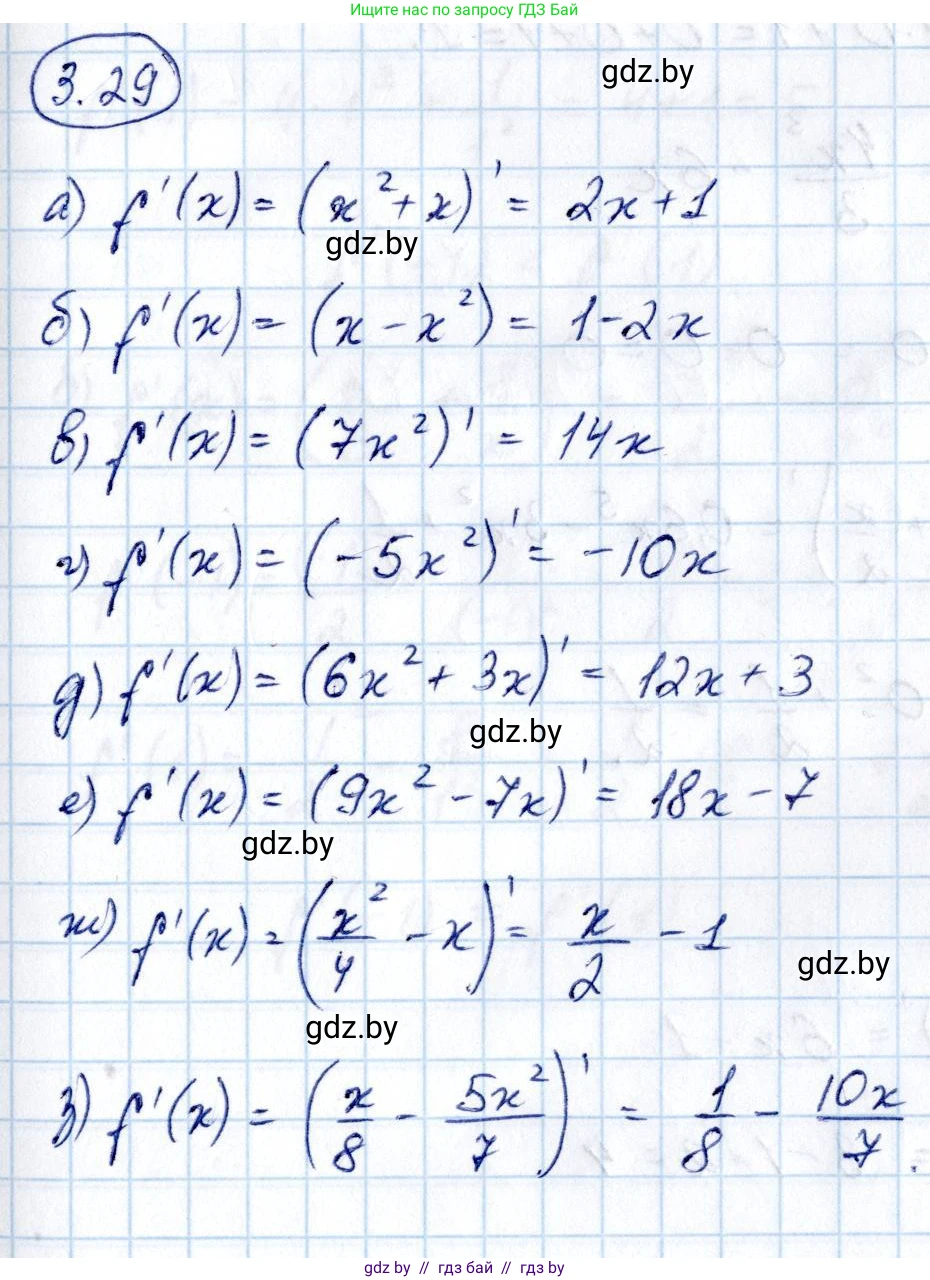 Ищите нас по запросу ГДЗ Бай
3.29
gdz.by
а) f'(x) = (x² + x)' = 2x + 1
gdz.by
б) f'(x) = (x - x²) = 1 - 2x
в) f'(x) = (7x²)' = 14x
г) f'(x) = (-5x²)' = -10x
д) f'(x) = (6x² + 3x)' = 12x + 3
gdz.by
е) f'(x) = (9x² - 7x)' = 18x - 7
gdz.by
ж) f'(x) = (x²/4 - x)' = x/2 - 1
gdz.by
gdz.by
з) f'(x) = (x/8 - 5x²/7)' = 1/8 - 10x/7.
gdz.by // гдз бай // gdz.by